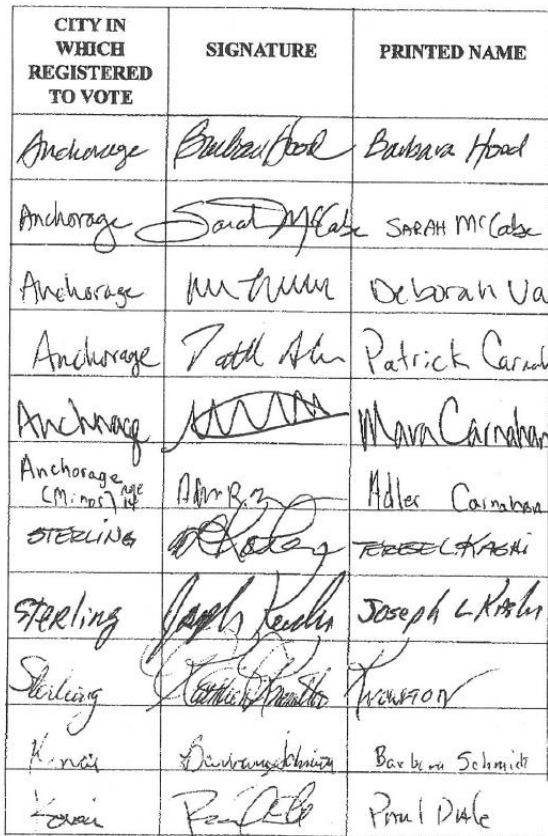 CITY IN
WHICH
REGISTERED
TO VOTE
SIGNATURE
PRINTED NAME
Anchorage Barbara Hood Barbara Hood
Anchorage Sarah McCabe SARAH McCabe
Anchorage Deborah Va
Anchorage Patrick Carnah
Anchorage Mara Carnahan
Anchorage
(Minor) age 14 Adler Carnahan
STERLING TERESE L KASHI
Sterling Joseph Kashi JOSEPH L KAShi
Sterling
Kenai Barbara Schmidt
Kenai Paul Dale